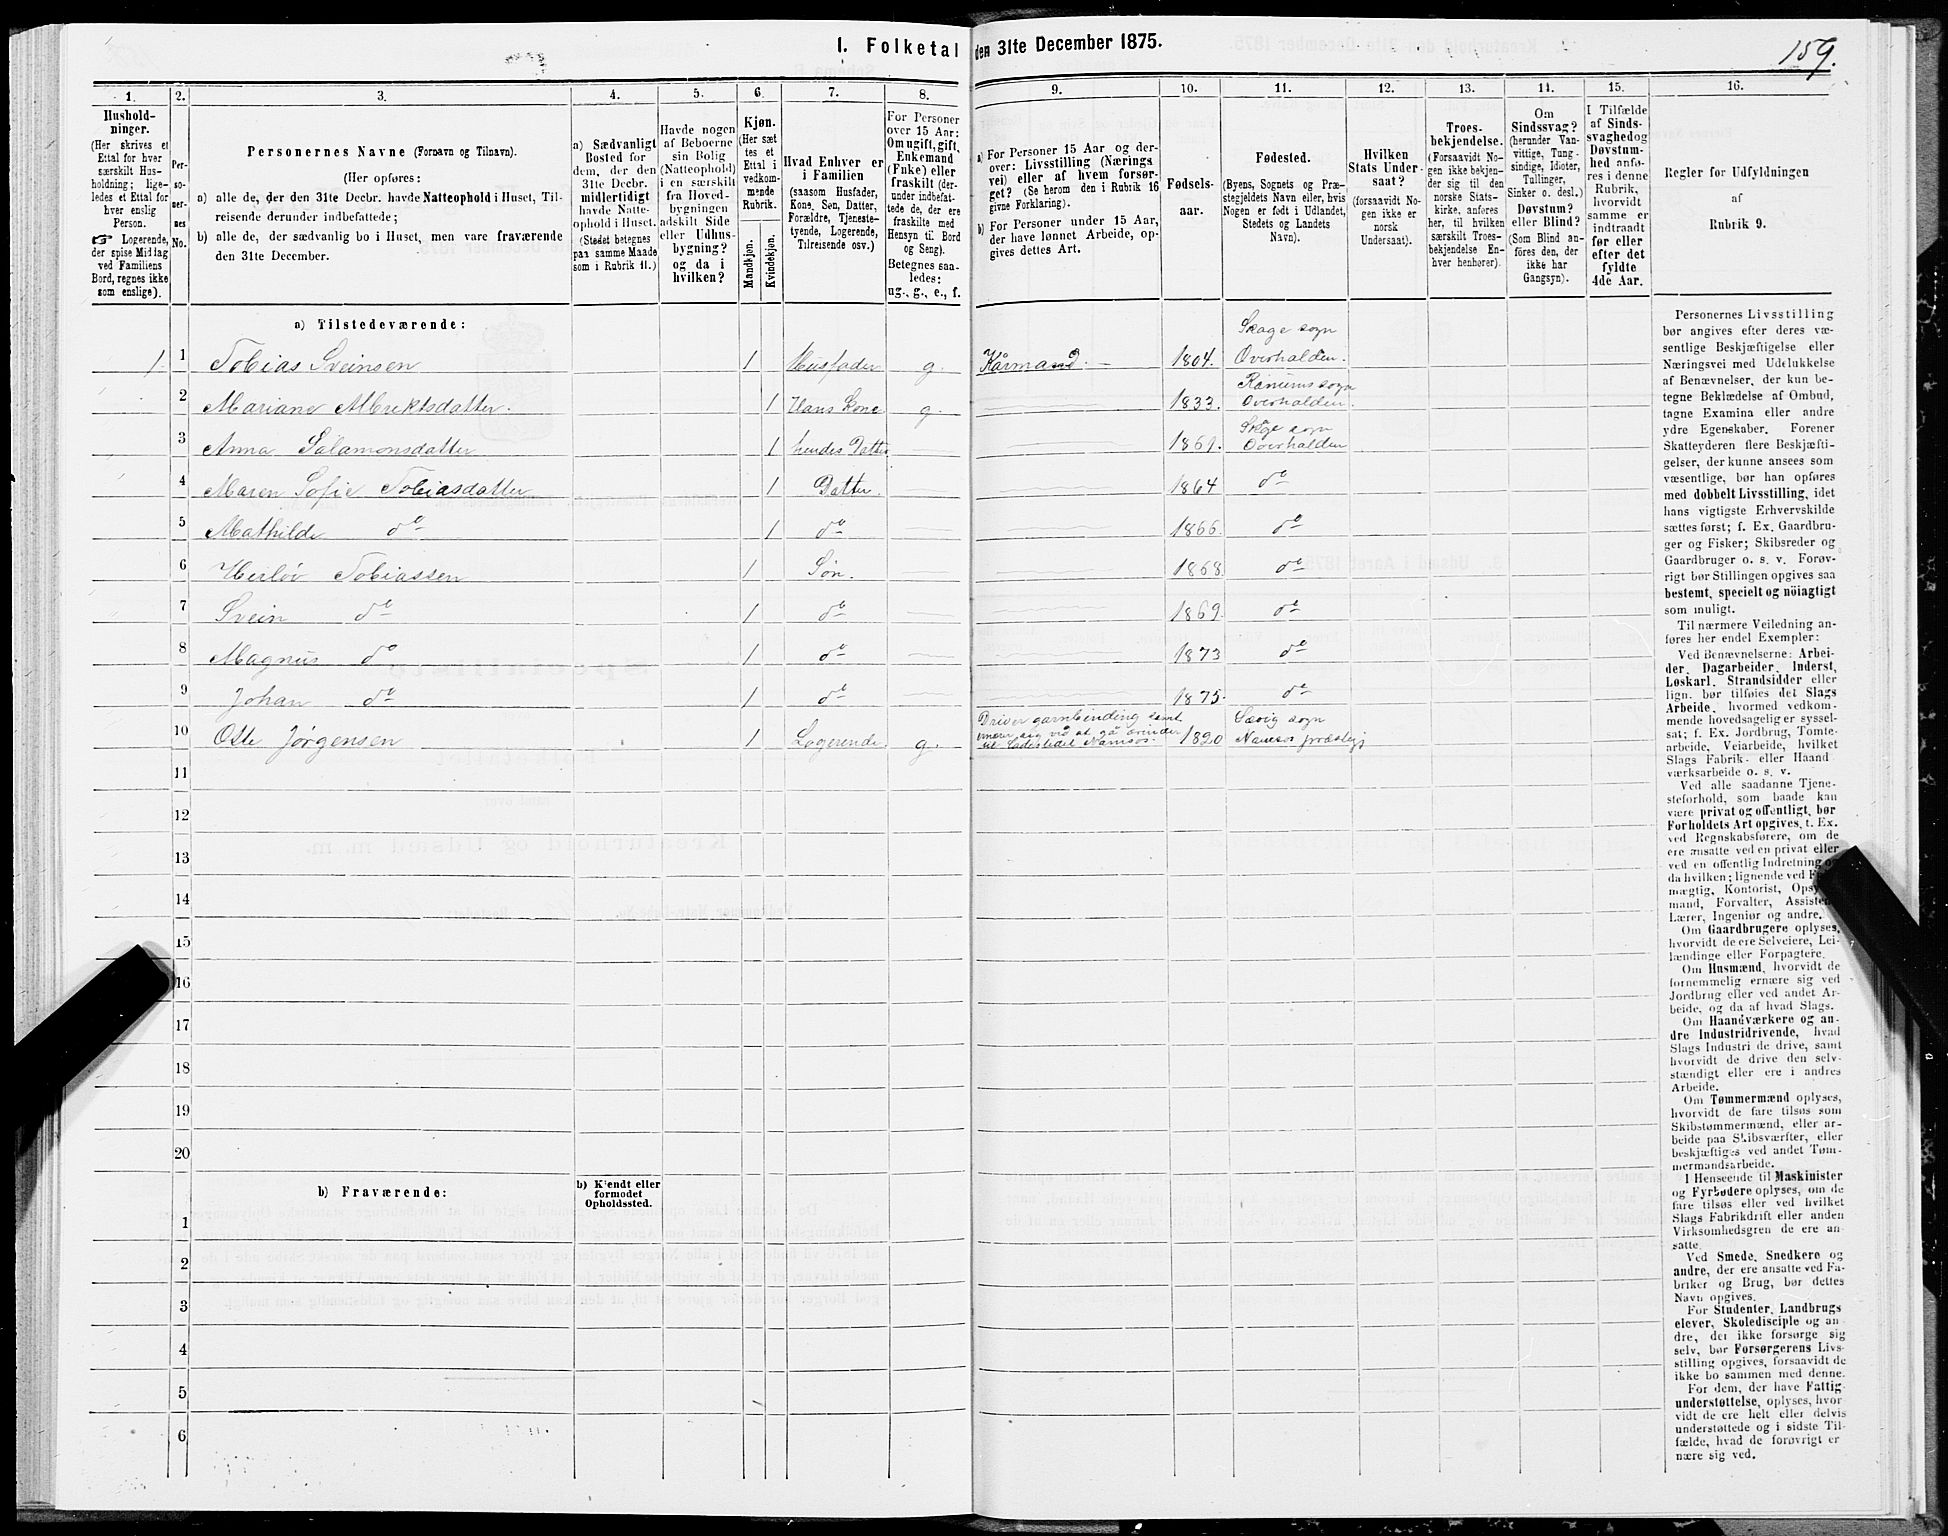 I. Folketal den 31te December 1875.
159.
1.
Hushold-
ninger.
(Her skrives et
Ettal for hver
særskilt Hus-
holdning; lige-
ledes et Ettal for
hver enslig
Person.
☞ Logerende,
der spise Middag
ved Familiens
Bord, regnes ikke
som enslige).
2.
Per-
so-
ner-
nes
No.
3.
Personernes Navne (Fornavn og Tilnavn).
(Her opføres:
a) alle de, der den 31te Decbr. havde Natteophold i Huset, Til-
reisende derunder indbefattede;
b) alle de, der sædvanlig bo i Huset, men vare fraværende
den 31te December.
4.
a) Sædvanligt
Bosted for
dem, der den
31te Decbr.
midlertidigt
havde Natte-
ophold i Huset.
(Stedet betegnes
paa samme Maade
som i Rubrik 11.)
5.
Havde nogen
af Beboerne
sin Bolig
(Natteophold)
i en særskilt
fra Hoved-
bygningen
adskilt Side
eller Udhus-
bygning?
og da i
hvilken?
6.
Kjøn.
(Her sæt
tes et
Ettal i
vedkom-
mende
Rubrik.
Mandkjøn.
Kvindekjøn.
7.
Hvad Enhver er
i Familien
(saasom Husfader,
Kone, Søn, Datter,
Forældre, Tjeneste-
tyende, Logerende,
Tilreisende osv.)
8.
For Personer
over 15 Aar:
Om ugift, gift,
Enkemand
(Enke) eller
fraskilt (der-
under indbefat-
tede de, der ere
fraskilte med
Hensyn til Bord
og Seng).
Betegnes saa-
ledes:
ug., g., e., f.
9.
a) For Personer 15 Aar og der-
over: Livsstilling (Nærings
vei) eller af hvem forsør-
get? (Se herom den i Rubrik 16
givne Forklaring).
b) For Personer under 15 Aar,
der have lønnet Arbeide, op-
gives dettes Art.
10.
Fødsels-
aar.
11.
Fødested.
(Byens, Sognets og Præ-
stegjeldets Navn eller, hvis
Nogen er født i Udlandet,
Stedets og Landets
Navn).
12.
Hvilken
Stats Under-
saat?
(forsaavidt No-
gen ikke er
norsk
Undersaat).
13.
Troes-
bekjendelse.
(Forsaavidt No-
gen ikke bekjen-
der sig til den
norske Stats-
kirke, anføres
her, til hvilken
særskilt Troes-
bekjendelse En-
hver henhører).
14.
Om
Sindssvag?
(herunder Van-
vittige, Tung-
sindige, Idioter,
Tullinger,
Sinker o. desl.)
Døvstum?
eller Blind?
(Som Blind an-
føres den, der
ikke har
Gangsyn).
15.
I Tilfælde
af Sinds-
svaghed og
Døvstum-
hed anfø-
res i denne
Rubrik,
hvorvidt
samme er
indtraadt
før eller
efter det
fyldte
4de Aar.
16.
Regler for Udfyldningen
af
Rubrik 9.
a) Tilstedeværende:
1. 1 Tobias Sveinsen 1 Husfader g. Kårmand. 1804. Skage sogn Overhalden.
2 Mariane Mrektsdatter. 1 Hans Kone g. 1833. Ranums sogn Overhalden.
3 Anna Salamonsdatter 1 hendes Datter 1861. Skage sogn Overhalden
4 Maren Sofie Tobiasdatter 1 Datter. 1864 do
5 Mathilde do 1 do 1866. do
6 Herløv Tobiassen 1 Søn. 1868. do
7 Svein do 1 do 1869. do
8 Magnus do 1 do 1873 do
9 Johan do 1 do 1875. do
10 Otte Jørgensen 1 Logerende g. Driver garnbinding samt ernærer sig ved at gå ærinder til Ladestedet Namsos. 1820 Sævig sogn Namsos præstegj
11
12
13
14
15
16
17
18
19
20
b) Fraværende:
b) Kjendt eller
formodet
Opholdssted.
1
2
3
4
5
6
Personernes Livsstilling
bør angives efter deres væ-
sentlige Beskjæftigelse eller
Næringsvei med Udelukkelse
af Benævnelser, der kun be-
tegne Beklædelse af Ombud,
tagne Examina eller andre
ydre Egenskaber. Forener
Skatteyderen flere Beskjæfti-
gelser, der kunne ansees som
væsentlige, bør han opføres
med dobbelt Livsstilling, idet
hans vigtigste Erhvervskilde
sættes først; f. Ex. Gaardbru-
ger og Fisker; Skibsreder og
Gaardbruger o. s. v. Forøv-
rigt bør Stillingen opgives saa
bestemt, specielt og nöiagtigt
som muligt.
Til nærmere Veiledning an-
føres her endel Exempler:
Ved Benævnelserne: Arbei-
der, Dagarbeider, Inderst,
Løskarl, Strandsidder eller
lign. bør tilføies det Slags
Arbeide, hvormed vedkom-
mende hovedsagelig er syssel-
sat; f. Ex. Jordbrug, Tomte-
arbeide, Veiarbeide, hvilket
Slags Fabrik- eller Haand
værksarbeide o. s. v.
Ved alle saadanne Tjene-
steforhold, som baade kan
være privat og offentligt, bør
Forholdets Art opgives, t. Ex.
ved Regnskabsførere, om de
ere ansatte ved en privat eller
ved en offentlig Indretning og
da hvilken; lignende ved
mægtig, Kontorist, Opsy
mand, Forvalter, Assistent,
Lærer, Ingeniør og andre.
Om Gaardbrugere oplyses,
hvorvidt de ere Selveiere, Lei-
lændinge eller Forpagtere.
Om Husmænd, hvorvidt de
fornemmelig ernære sig ved
Jordbrug eller ved andet Ar-
beide, og da af hvad Slags.
Om Haandværkere og an-
dre Industridrivende, hvad
Slags Industri de drive, samt
hvorvidt de drive den selv-
stændigt eller ere i andres
Arbeide.
Om Tømmermænd oplyses,
hvorvidt de fare tilsøs som
Skibstømmermænd, eller ar-
beide paa Skibsværfter, eller
beskjæftiges ved andet Tøm-
mermandsarbeide.
I Henseende til Maskinister
og Fyrbødere oplyses, om de
fare tilsøs eller ved hvilket
Slags Fabrikdrift eller anden
Virksomhedsgren de ere an-
satte.
Ved Smede, Snedkere og
andre, der ere ansatte ved Fa-
briker og Brug, bør dettes
Navn opgives.
For Studenter, Landbrugs
elever, Skoledisciple og an-
dre, der ikke forsørge sig
selv, bør Forsørgerens Livs-
stilling opgives, forsaavidt de
ikke bo sammen med denne.
For dem, der have Fattig-
understøttelse, oplyses, hvor-
vidt de ere helt eller delvis
understøttede og i sidste Til-
fælde, hvad de forøvrigt er
nære sig ved.